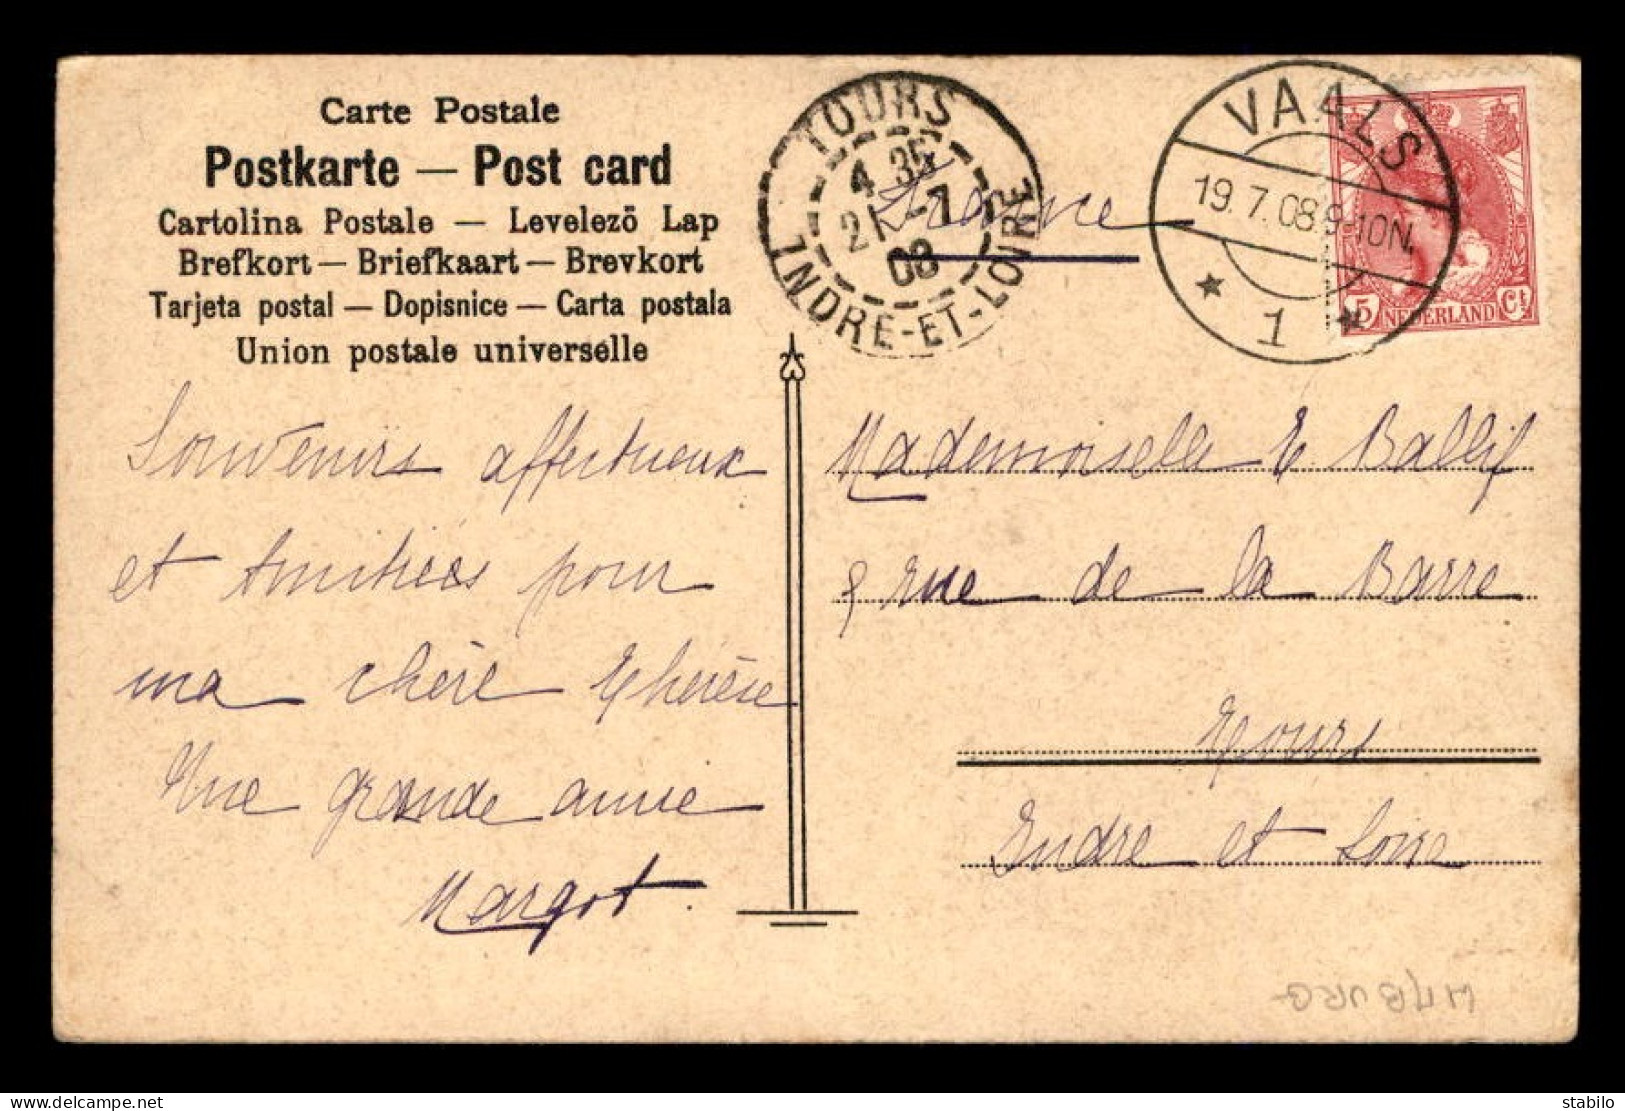 Carte Postale
Postkarte — Post card
Cartolina Postale — Levelezö Lap
Brefkort — Briefkaart — Brevkort
Tarjeta postal — Dopisnice — Carta postala
Union postale universelle
TOURS
4 35
21 -7
08
INDRE-ET-LOIRE
France
VAALS
19.7.08.9-10N.
1
5 NEDERLAND Ct
Souvenirs affectueux
et Amitiés pour
ma chère Thérèse
Une grande amie
Margot.
Mademoiselle T. Ballif
9 rue de la Barre
Tours
Indre et Loire
delcampe.net
Stabilo